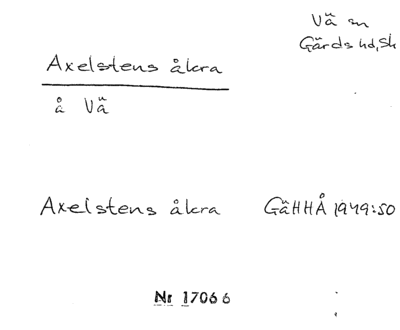 Vä sn
Gärds hd, Sk
Axelstens åkra
å Vä
Axelstens åkra GäHHÅ 1949:50
Nr 17066